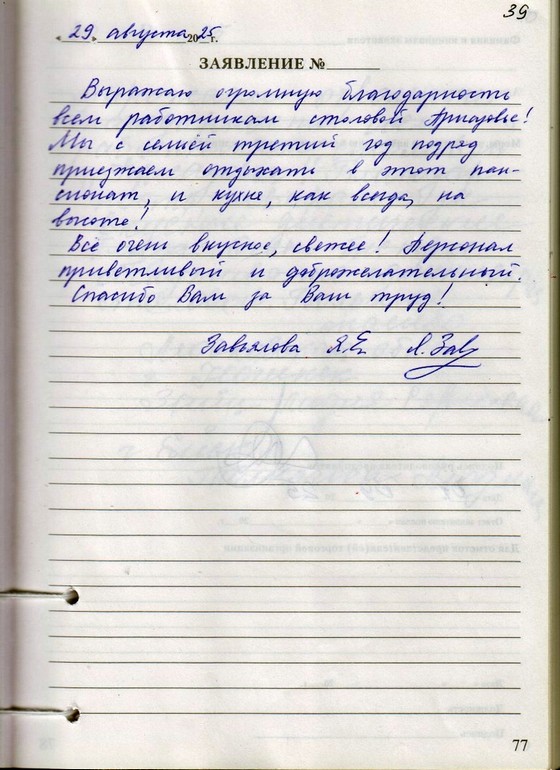 39
« 29 » августа 2025 г.
ЗАЯВЛЕНИЕ №
Выражаю огромную благодарность
всем работникам столовой Приазовье!
Мы с семьёй третий год подряд
приезжаем отдыхать в этот пан-
сионат, и кухня, как всегда, на
высоте!
Всё очень вкусное, свежее! Персонал
приветливый и доброжелательный.
Спасибо Вам за Ваш труд!
Завьялова Я.Е. Я.Зав
77